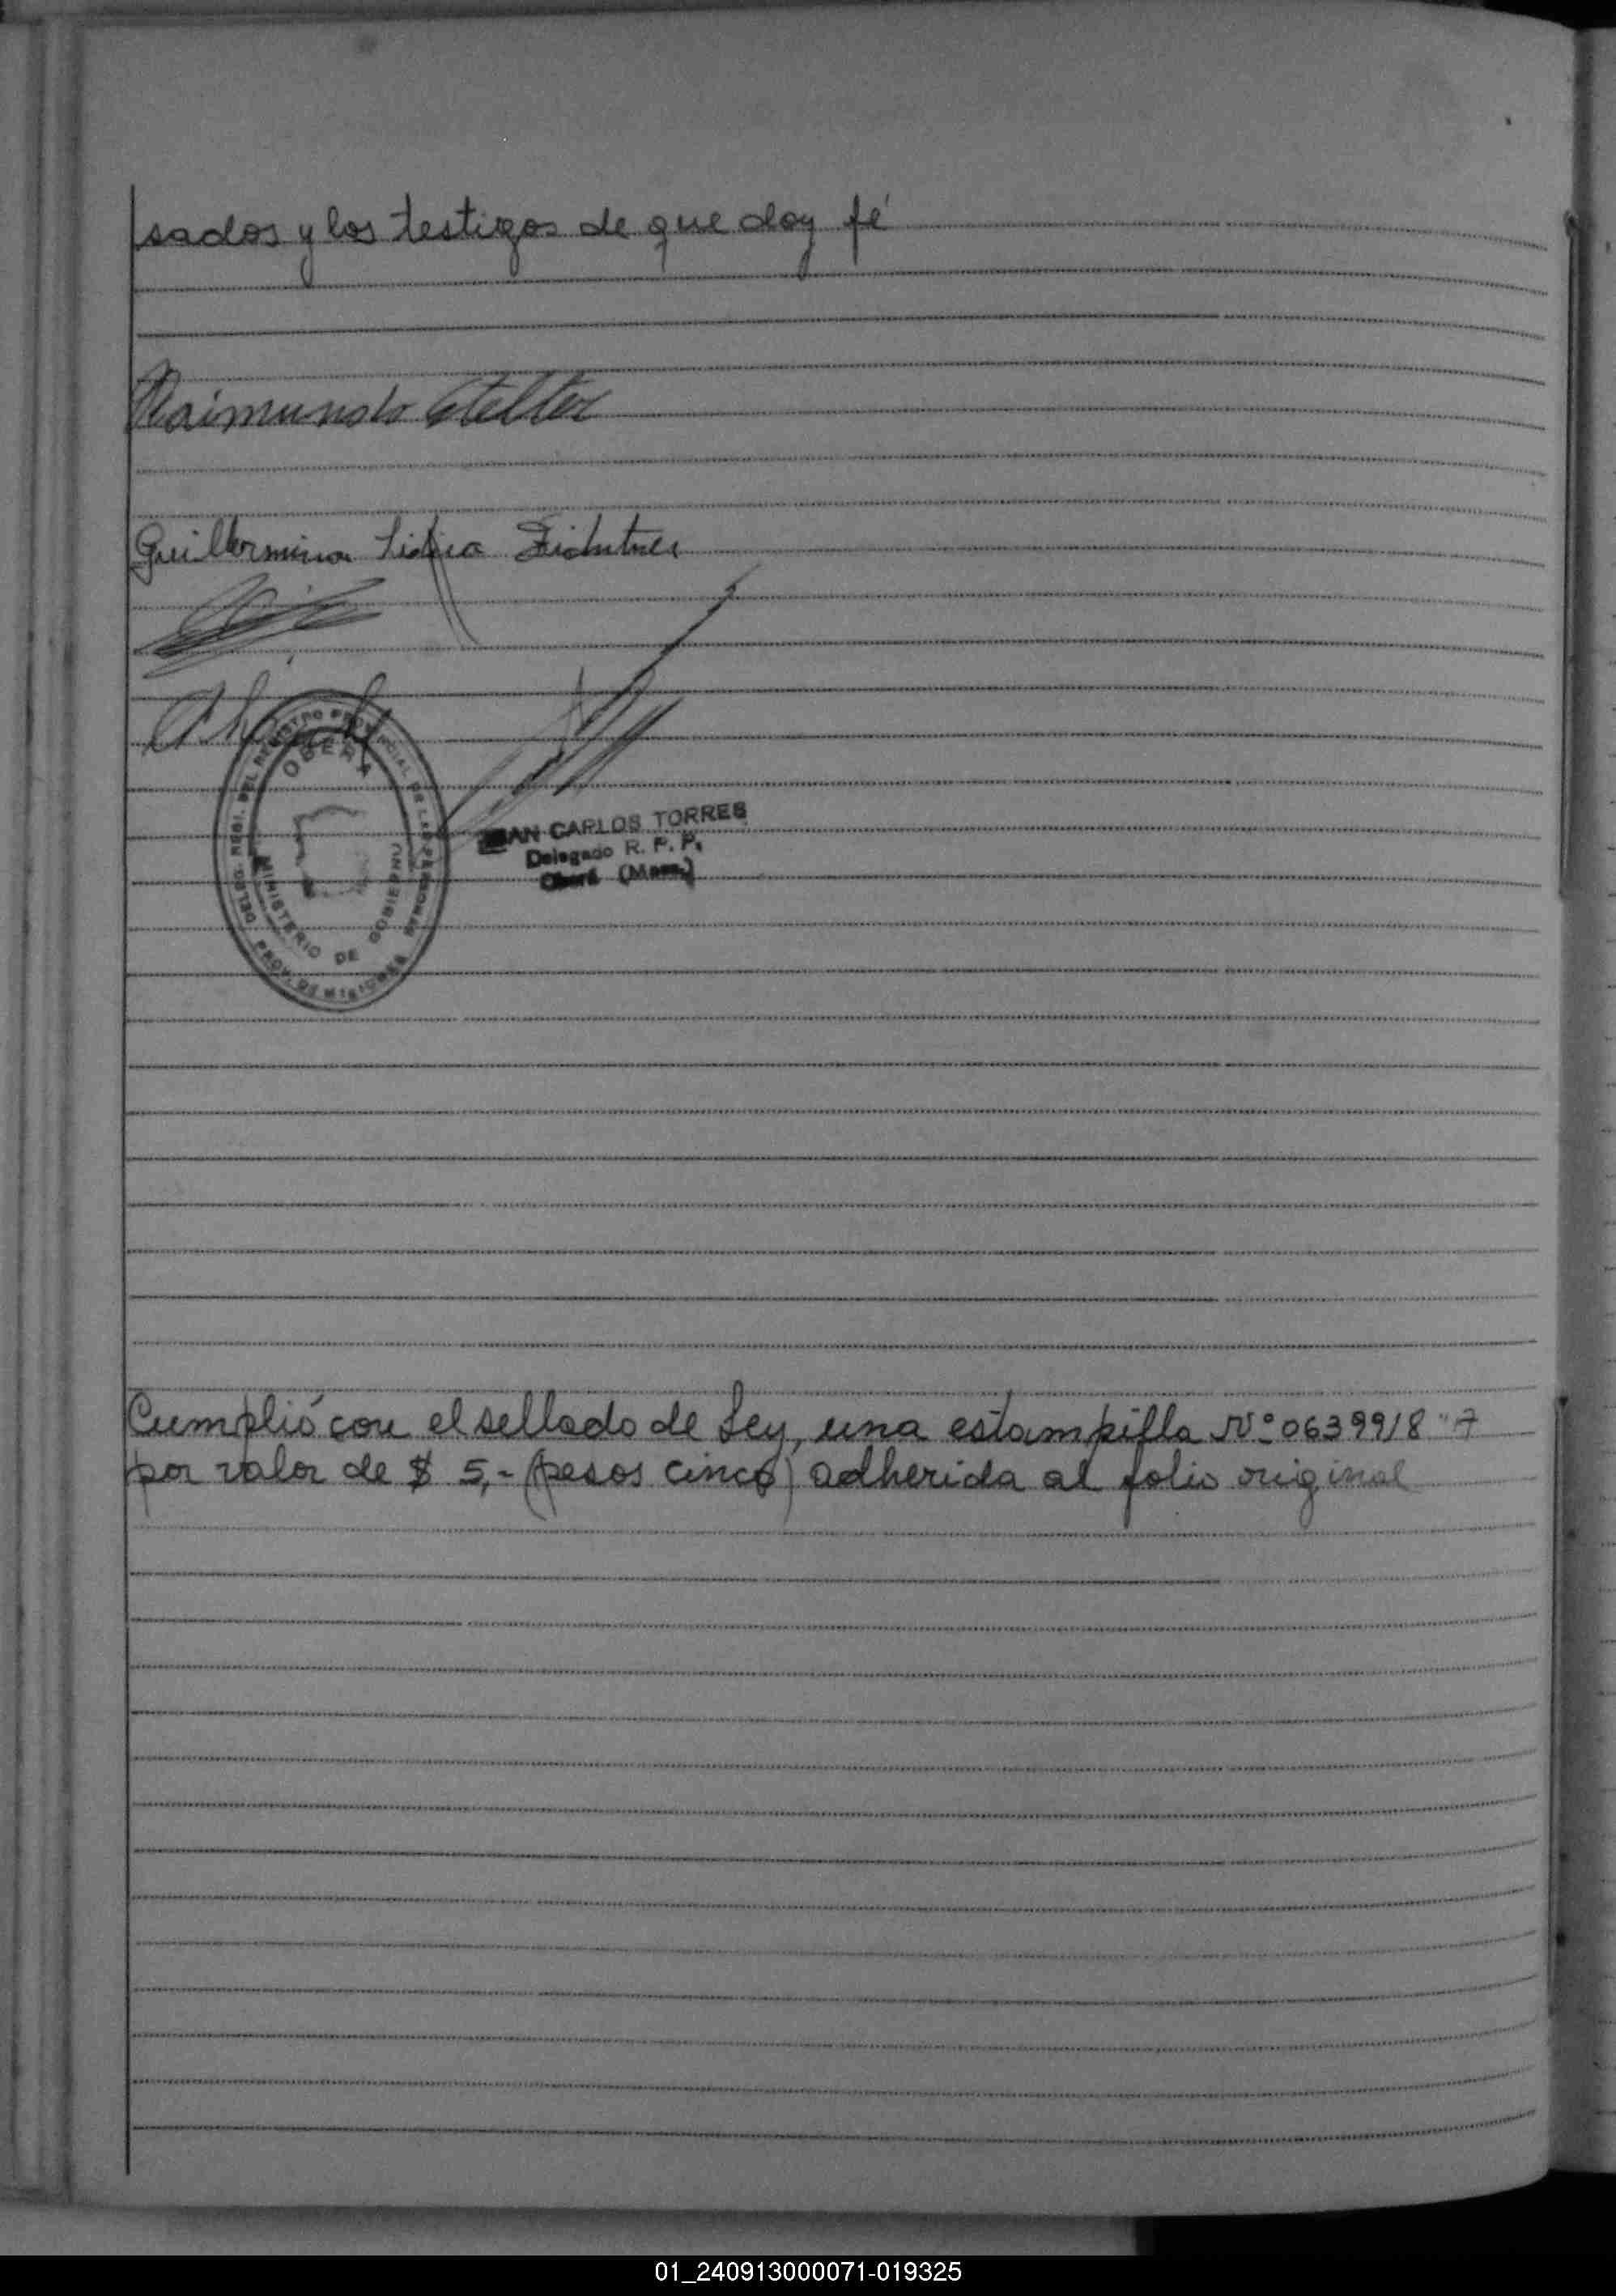 sados y los testigos de que doy fé
Raimundo Stelter
Guillermina Lidia Fichtner
DELEG. REGI. DEL REGISTRO PROVINCIAL DE LAS PERSONAS
OBERA
MINISTERIO DE GOBIERNO
PROV. DE MISIONES
JUAN CARLOS TORRES
Delegado R. P. P.
Oberá (Mnes.)
Cumplió con el sellado de Ley, una estampilla Nº 0639918 "A
por valor de $ 5,- (pesos cinco) adherida al folio original
01_240913000071-019325